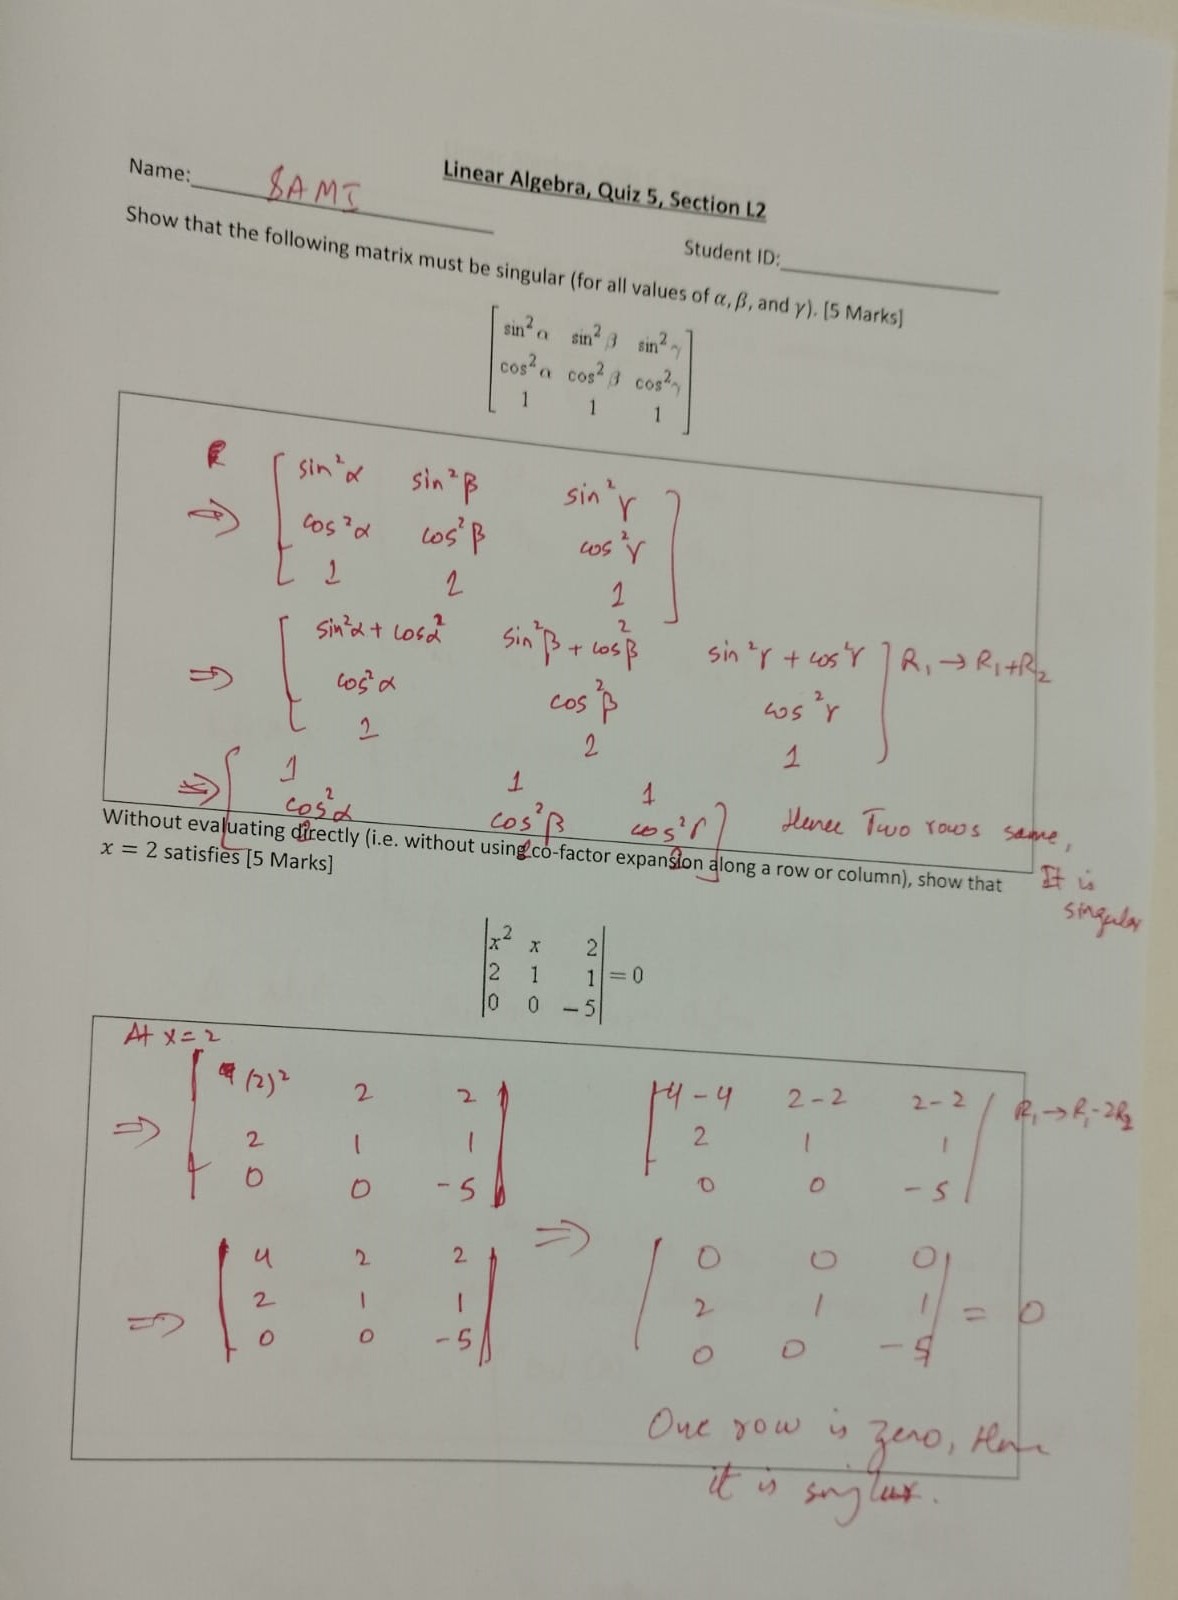 Linear Algebra, Quiz 5, Section L2
Name: SAMI
Student ID:
Show that the following matrix must be singular (for all values of α, β, and γ). [5 Marks]
sin²α sin²β sin²γ
cos²α cos²β cos²γ
1 1 1
⇒ [ sin²α sin²β sin²γ
cos²α cos²β cos²γ
1 1 1 ]
⇒ [ sin²α + cos²α sin²β + cos²β sin²γ + cos²γ ] R₁ → R₁+R₂
cos²α cos²β cos²γ
1 1 1
⇒ [ 1 1 1
cos²α cos²β cos²γ ] Hence Two rows same,
It is
singular
Without evaluating directly (i.e. without using co-factor expansion along a row or column), show that
x = 2 satisfies [5 Marks]
|x² x 2|
|2 1 1| = 0
|0 0 −5|
At x = 2
⇒ | (2)² 2 2 |
2 1 1
0 0 -5
⇒ | 4 2 2 |
2 1 1
0 0 -5
| 4-4 2-2 2-2 | R₁ → R₁-2R₂
2 1 1
0 0 -5
⇒ | 0 0 0 |
2 1 1 = 0
0 0 -5
One row is zero, Hence
it is